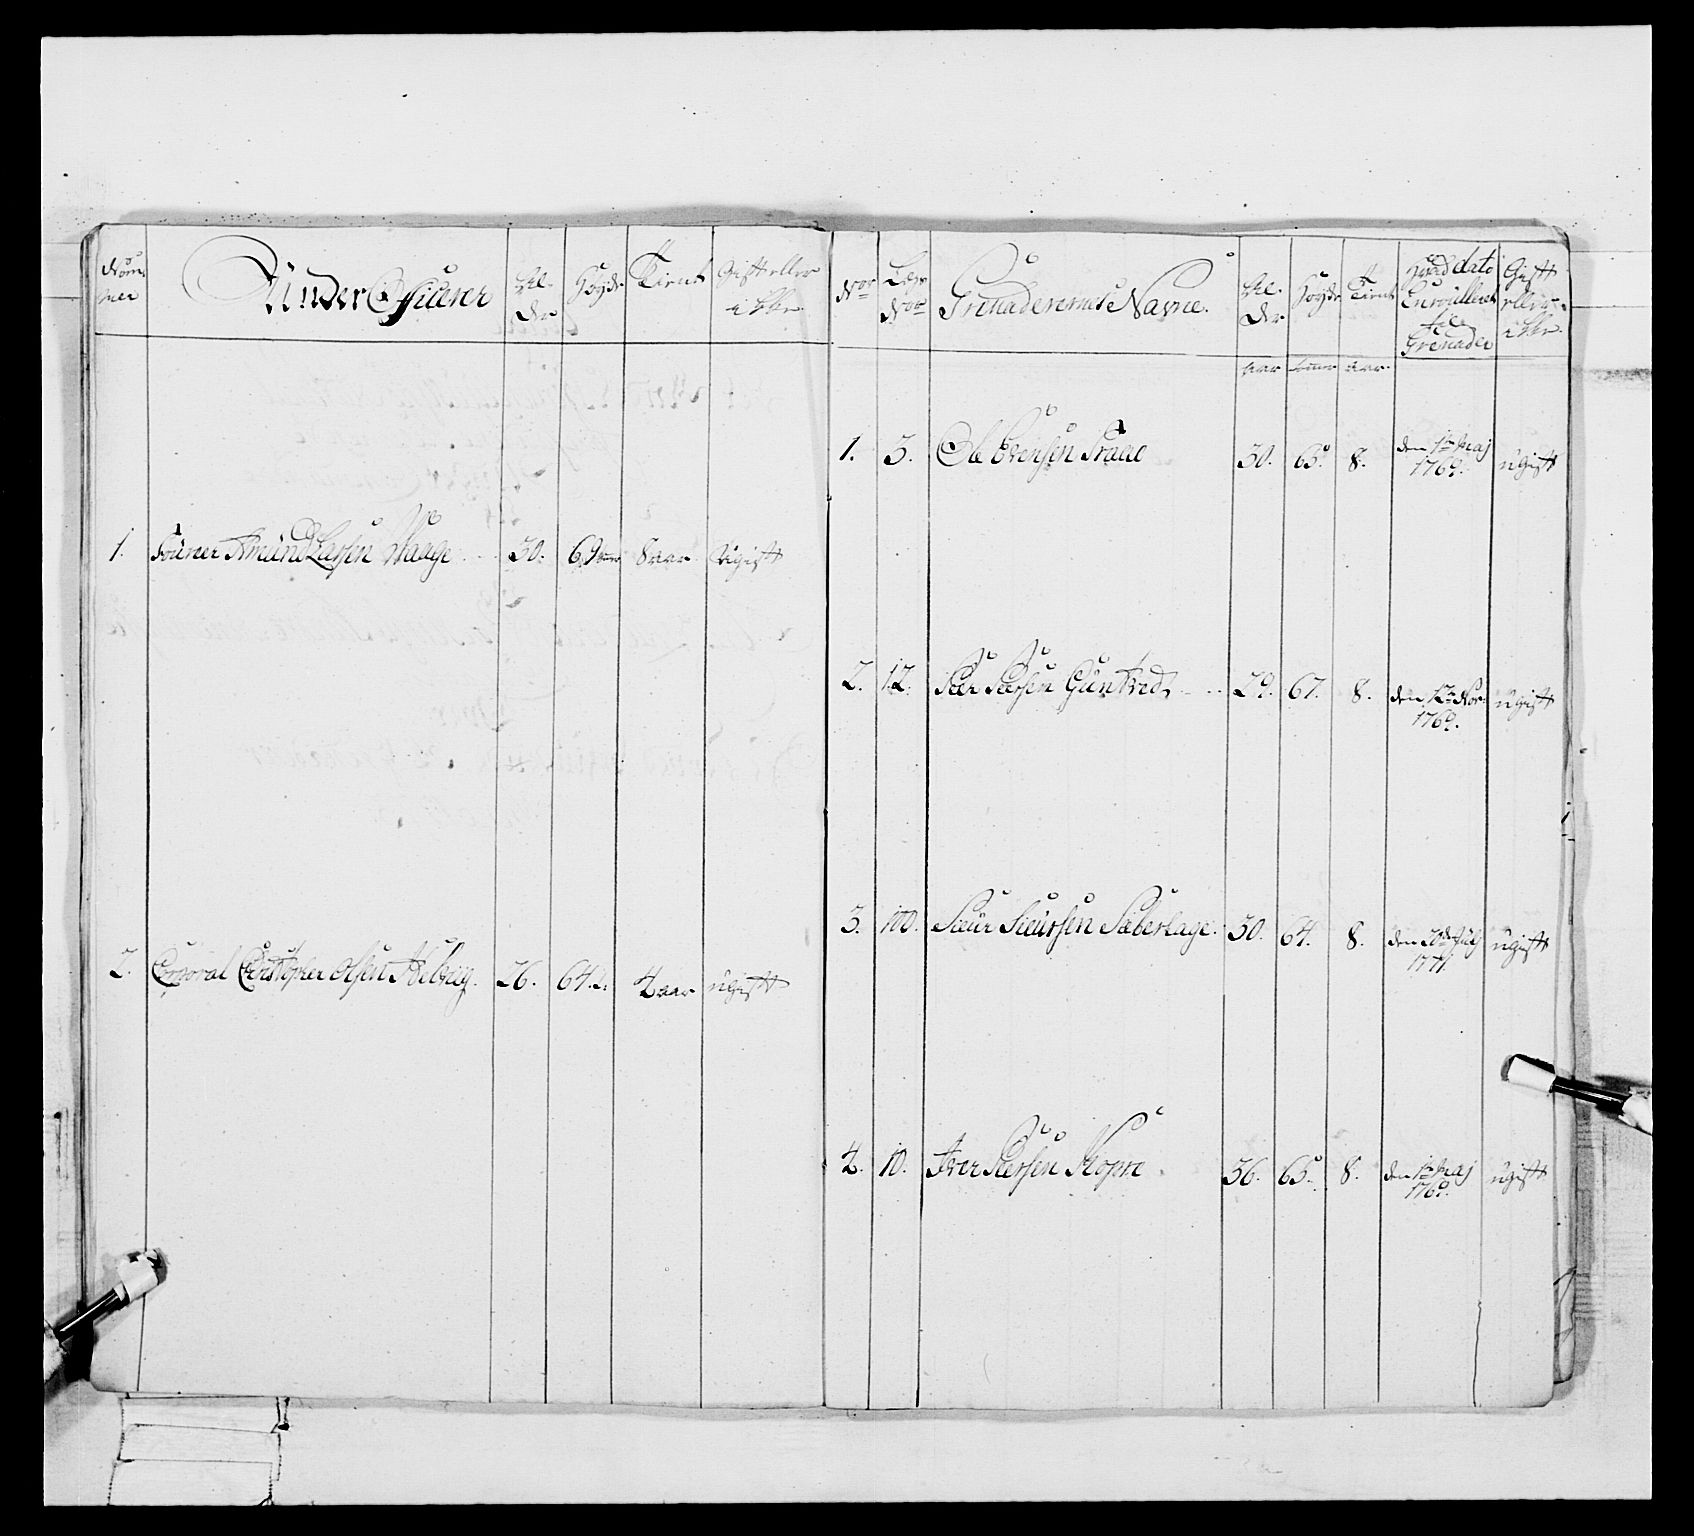 Num-
mer
Under Officerer
Al-
der
Høyde
Tient
Gift eller
ikke
1. Fourier Amund Larsen Waage 30. 69 8 aar Ugift
2. Corporal Christopher Olsen 26. 64. 4 aar ugift
Nor
Læg
Nor
Grenaderernes Navne.
Al-
der
Høyde
Tient
Hvad dato
Enroulleret
til
Grenader
Gift
eller
ikke
aar aar
1. 5. Ole Evensen Fraae 30. 65. 8. den 1te Maj
1769. ugift
2. 12. Siur Siursen Guntveds 29. 67. 8. den 12te Nov:
1769. ugift
3. 100. Siur Siursen Sæberhage. 30. 64. 8. den 20de July
1771. ugift
4. 10. Iver Siursen Kopre 36. 65. 8. den 1te Maj
1769. ugift